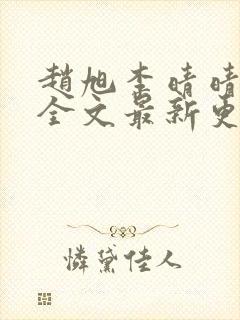 趙旭李晴晴
全文最新更
憐黛佳人